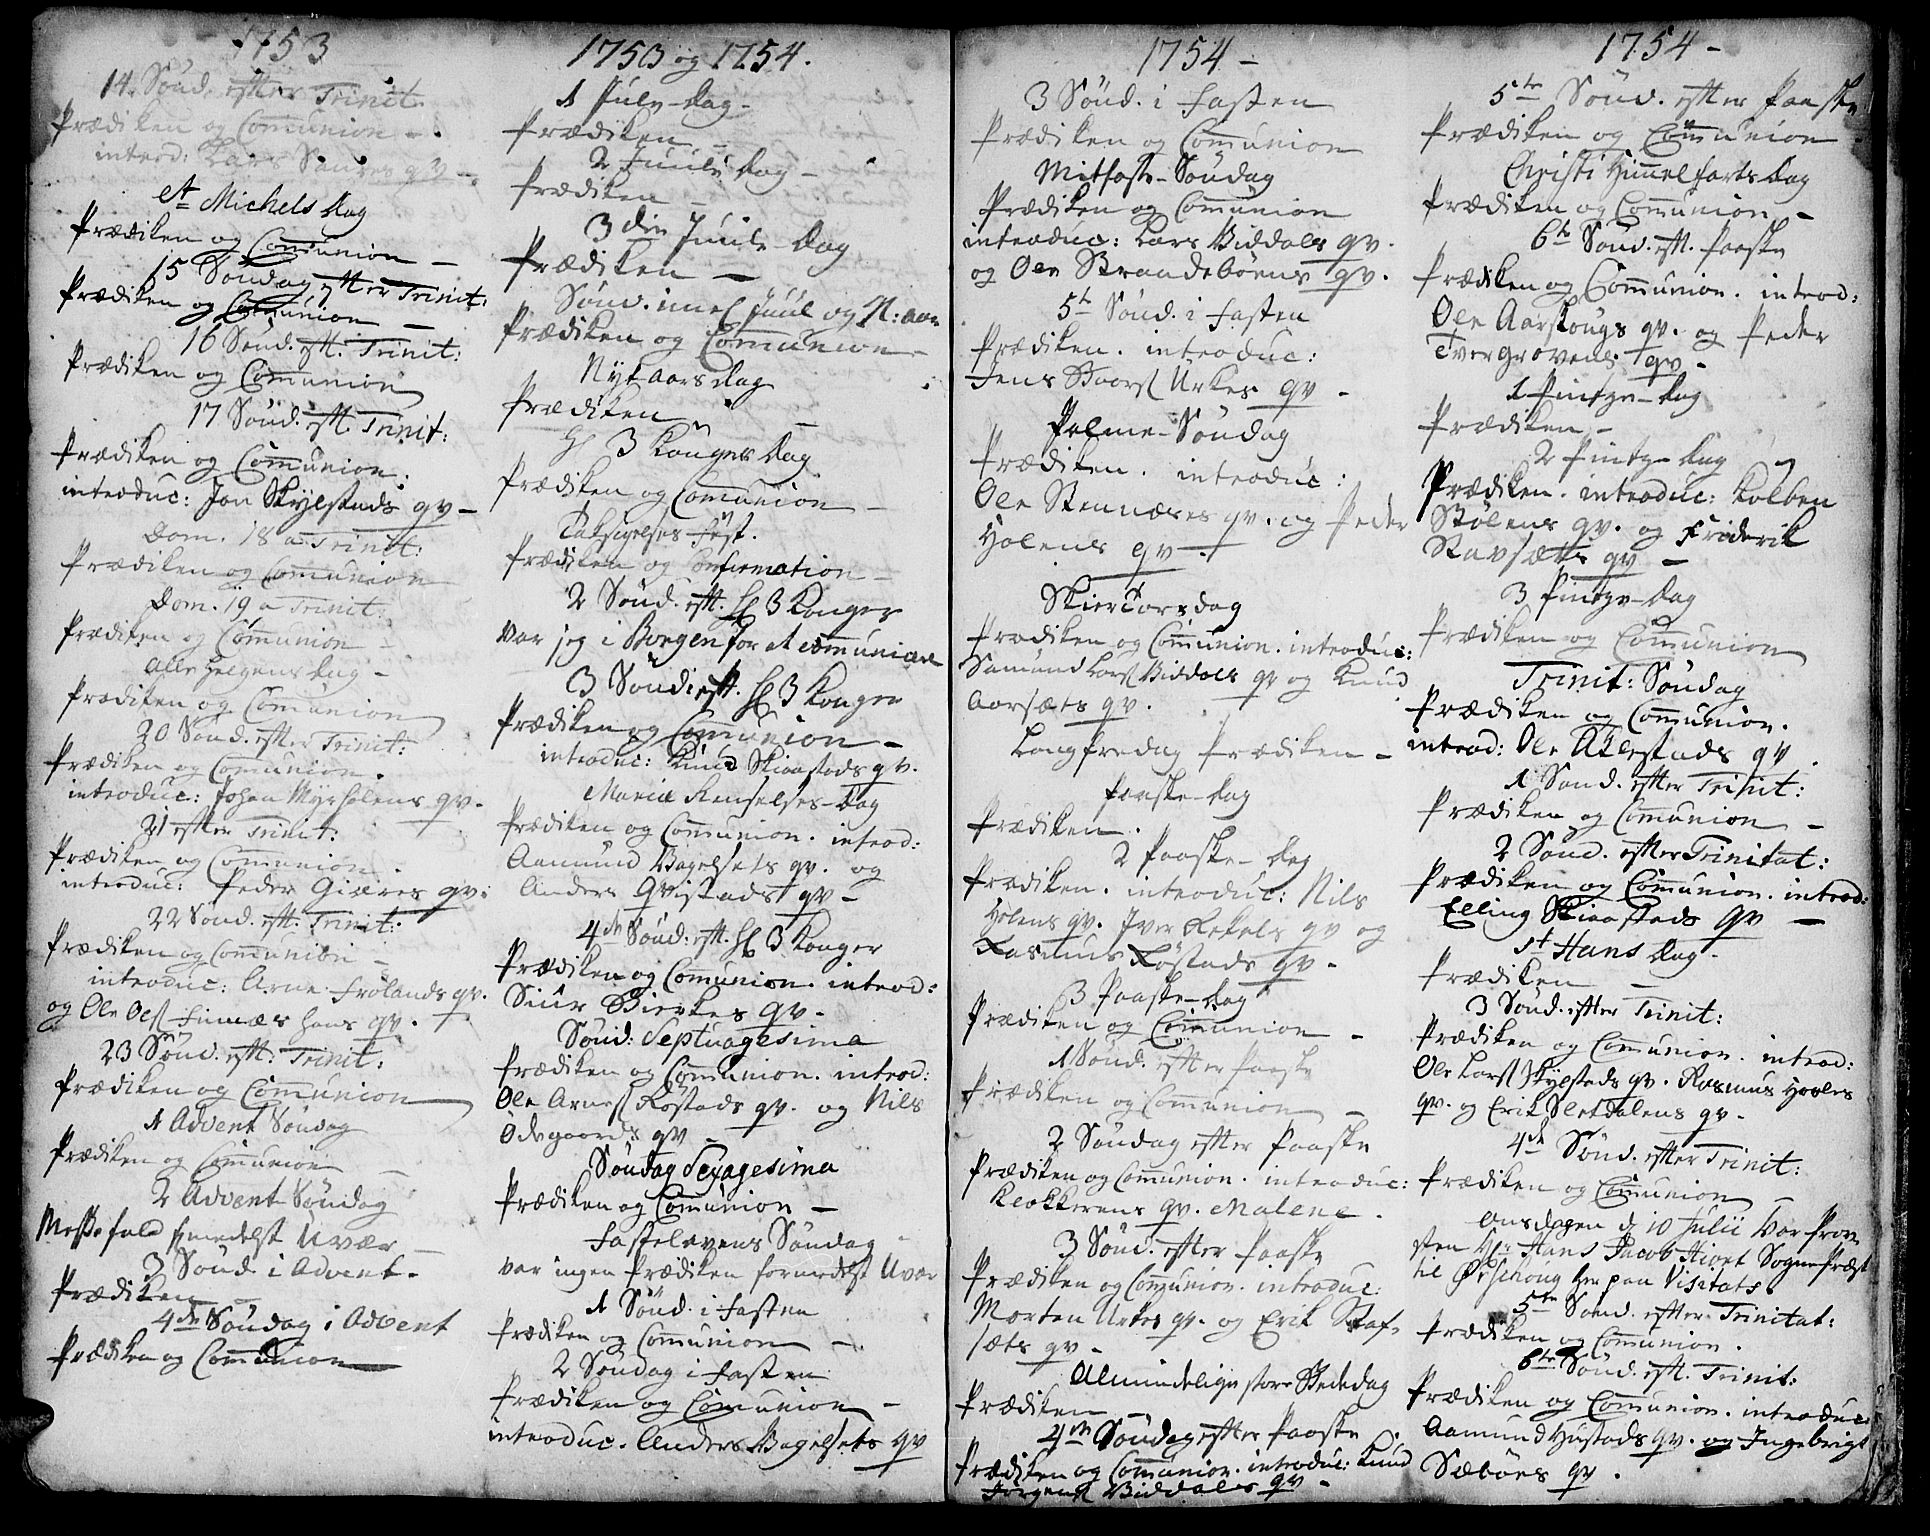 1753
14. Sønd. efter Trinit.
Prædiken og Communion -
introd: Lars Saures qv -
St Michels Dag
Prædiken og Communion -
15 Søndag efter Trinit:
Prædiken og Communion -
16 Sønd. eft. Trinit:
Prædiken og Communion
17 Sønd. eft. Trinit:
Prædiken og Communion.
introduc: Jon Skylstads qv -
Dom. 18 a Trinit:
Prædiken og Communion
Dom. 19 a Trinit:
Prædiken og Communion -
Alle Helgens Dag -
Prædiken og Communion
20 Sønd. efter Trinit:
Prædiken og Communion.
introduc: Johan Myrholens qv.
21 efter Trinit:
Prædiken og Communion.
introduc: Peder Giæres qv:
22 Sønd. eft. Trinit:
Prædiken og Communion -
introduc: Arne Frølands qv.
og Ole Oles Finnes hans qv.
23 Sønd. eft. Trinit:
Prædiken og Communion
1 Advent Søndag
Prædiken og Communion -
2 Advent Søndag
Messefald formedelst Uvær -
3 Sønd i Advent.
Prædiken -
4de Søndag i Advent
Prædiken og Communion
1753 og 1754.
1 Jule-Dag -
Prædiken -
2 Juule Dag -
Prædiken -
3die Juule-Dag
Prædiken -
Sønd. imel Juul og N: aar
Prædiken og Communion -
Nyt Aars Dag
Prædiken -
Hl 3 Kongers Dag
Prædiken og Communion -
Taksigelses Fest.
Prædiken og Confirmation -
2 Sønd. eft. Hl 3 Konger
Var jeg i Borgen for at communicere
3 Sønd. eft. Hl 3 Konger
Prædiken og Communion -
introduc: Knud Skiaastads qv.
Mariæ Renselses-Dag
Prædiken og Communion. introd:
Aamund Bagelsets qv. og
Anders Qvistads qv -
4de Sønd: eft. Hl 3 Konger
Prædiken og Communion. introd:
Siur Bierkes qv.
Sønd: Septuagesima
Prædiken og Communion. introd:
Ole Arnes Røstads qv. og Nils
Ødegaards qv -
Søndag Sexagesima
Prædiken og Communion -
Fastelavens Søndag -
var ingen Prædiken formedelst Uvær
1 Sønd. i Fasten
Prædiken og Communion -
2 Søndag i Fasten
Prædiken og Communion -
introduc. Anders Bagelsets qv
1754 -
3 Sønd. i Fasten
Prædiken og Communion
Mitfaste-Søndag
Prædiken og Communion
introduc: Lars Viddals qv.
og Ole Strandebøens qv.
5te Sønd. i Fasten
Prædiken. introduc:
Jens Urkes qv -
Palme-Søndag
Prædiken. introduc:
Ole Stennæses qv. og Peder
Holens qv -
Skiertorsdag
Prædiken og Communion. introduc:
Samund Lars Viddals qv og Knud
Aarsæts qv.
Langfredag Prædiken -
Paaske-Dag
Prædiken.
2 Paaske-Dag
Prædiken. introduc: Nils
Holens qv. Iver Rekels qv og
Rasmus Røstads qv -
3 Paaske-Dag
Prædiken og Communion -
1 Sønd. efter Paaske
Prædiken og Communion -
2 Søndag efter Paaske
Prædiken og Communion. introduc:
Klokkerens qv. Malene.
3 Sønd. efter Paaske
Prædiken og Communion. introduc:
Morten Urkes qv. og Erik Staf-
sæts qv -
Almindelige store Bededag
Prædiken -
4de Søndag efter Paaske
Prædiken og Communion. introduc: Knud
Jørgens Viddals qv -
1754 -
5te Sønd. efter Paaske
Prædiken og Communion
Christi Himmelfarts Dag
Prædiken og Communion -
6te Sønd. eft. Paaske
Prædiken og Communion. introd:
Ole Aarskougs qv. og Peder
Tvergrovens qv -
1 Pintze-Dag
Prædiken -
2 Pintze Dag
Prædiken. introduc: Kolben
Stølens qv. og Friderik
Stavsæts qv -
3 Pintze-Dag
Prædiken og Communion
Trinit: Søndag
Prædiken og Communion.
introd: Ole Aklestads qv.
1 Sønd. efter Trinit:
Prædiken og Communion -
2 Sønd. efter Trinitat:
Prædiken og Communion. introd:
Elling Skiaastads qv -
St Hans Dag -
Prædiken -
3 Sønd. efter Trinit:
Prædiken og Communion. introd:
Ole Lars Skylstads qv. Rasmus Hovles
qv. og Erik Sletdalens qv -
4de Sønd. efter Trinit:
Prædiken og Communion -
Onsdagen d 10 Julii var Prov-
sten Hr Hans Jacob Hiort Sognepræst
til Ørschoug her paa Visitats.
5te Sønd. efter Trinitat:
Prædiken og Communion.
6te Sønd. eft. Trinit:
Prædiken og Communion. introduc:
Aamund Hustads qv. og Ingebrigt
Sæbøes qv.